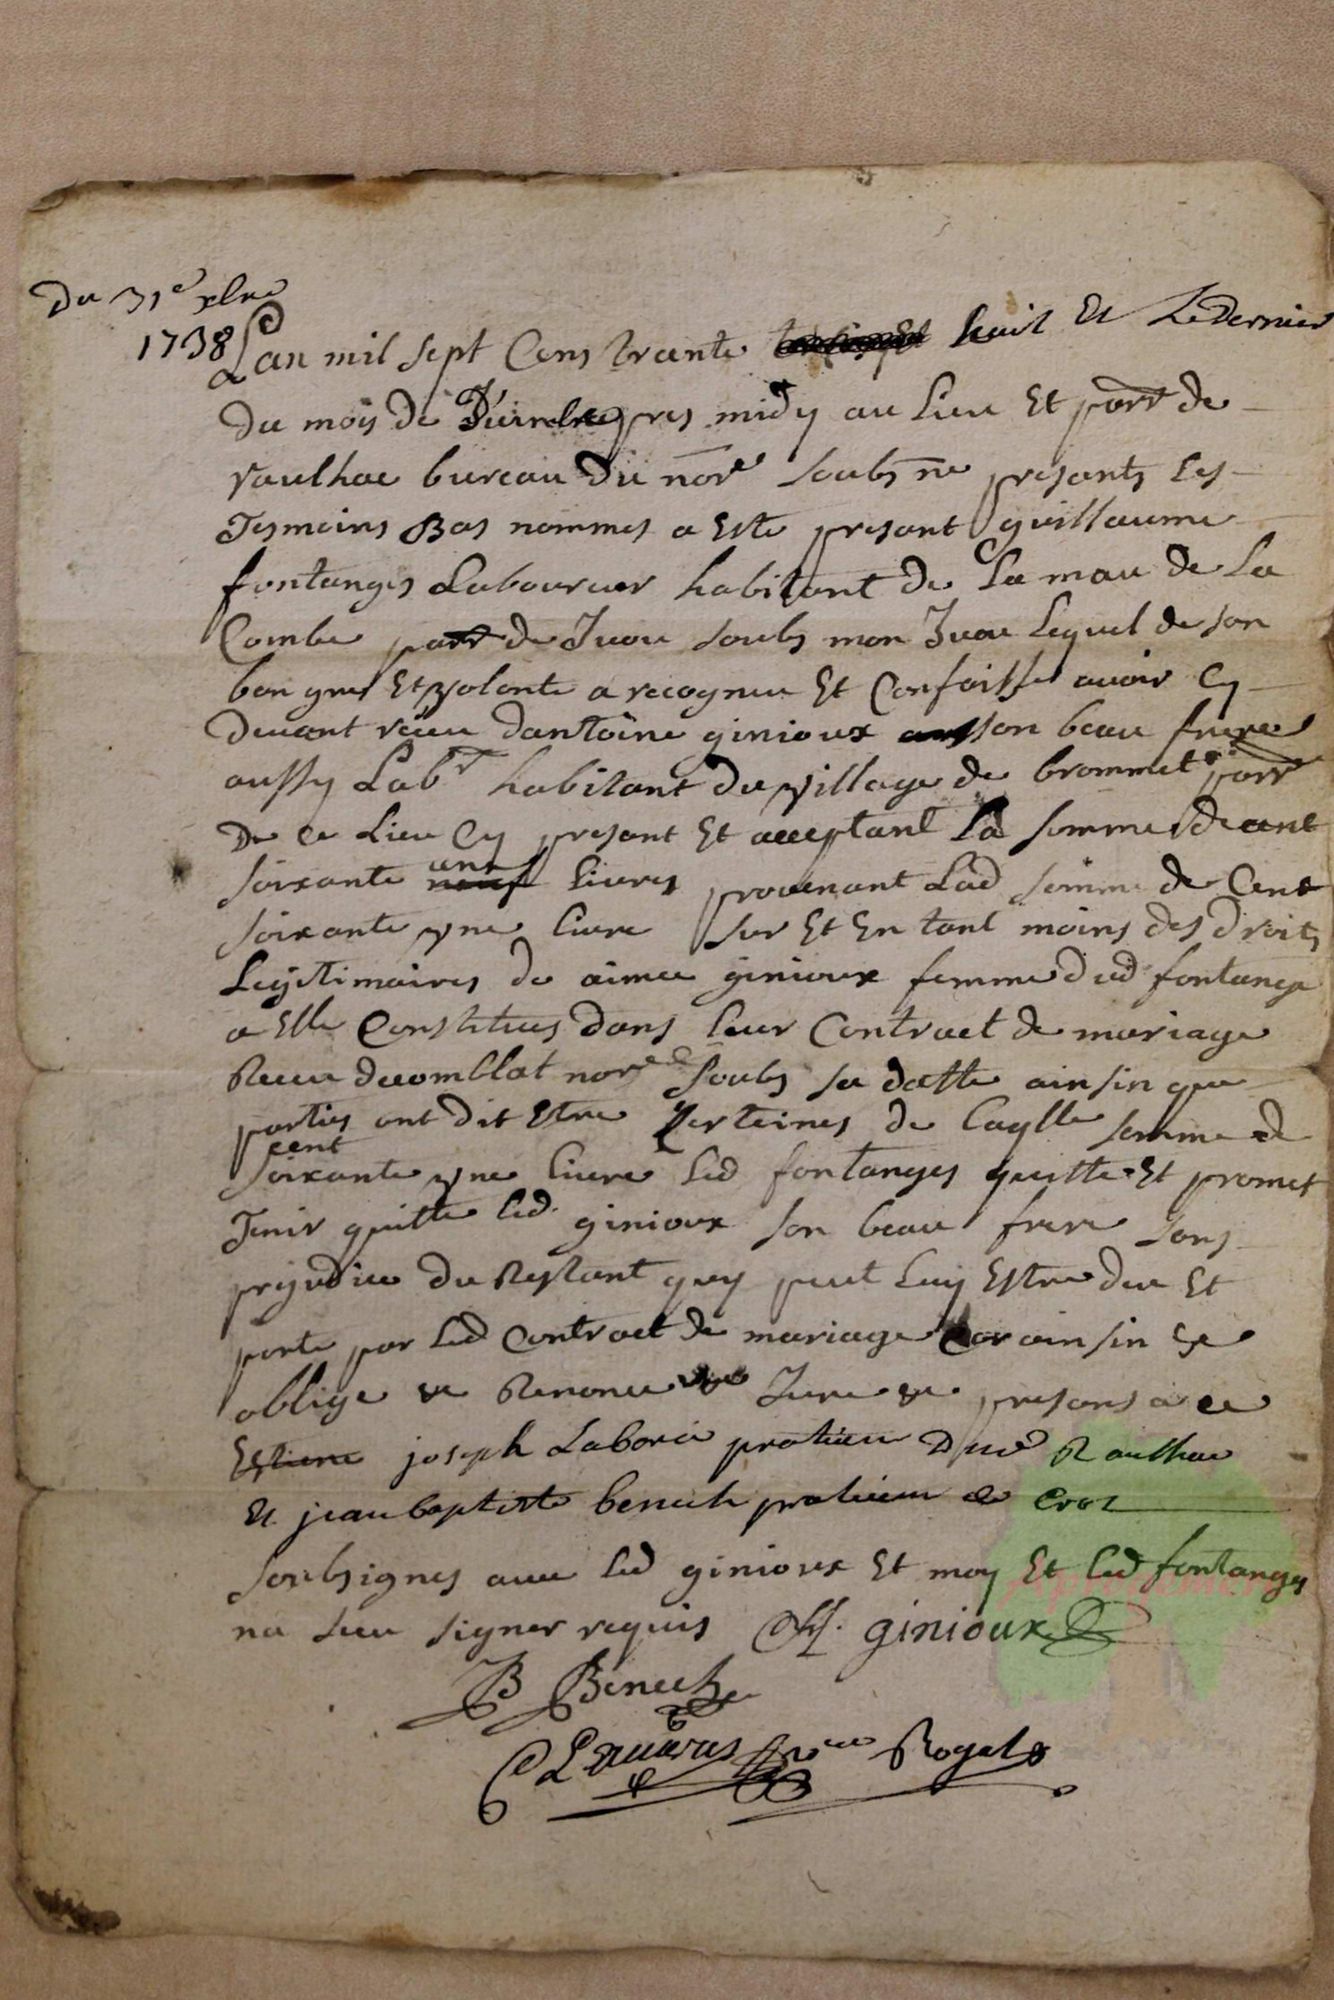 Du 31e xbre
1738
Lan mil sept Cens trante huit Et Le dernier
du mois de Decembre apres midy au Lieu Et parr de
raulhac bureau du nore soubsne presants les
Tesmoins Bas nommes a Este presant guillaume
fontanges Laboureur habitant de La mau de La
Combe parr de Juou soubs mon Juou Lequel de son
bon gres Et volonte a recogneu Et Confoisse avoir Cy
devant reçeu dantoine ginioux son beau frere
aussy Labr habitant du village de brommet parr
De ce Lieu Cy presant Et acceptant La somme de cent
soixante une Livres provenant Lad somme de Cent
soixante yne Livre sur Et En tant moins des droits
Legitimaires de aimee ginioux femme dud fontanges
a Elle Constitues dans leur Contract de mariage
Receu ducomblat nore soubs sa datte ainsin que
parties ont dit Estre de Laqlle somme de
cent
soixante yne livre Led fontanges quitte Et promet
Tenir quitte Led ginioux son beau frere sans
prejudice du Restant quy peut Luy Estre due Et
porte par Led Contract de mariage Car ainsin &e
oblige &e Renonce &e Jure &e presans a ce
joseph Laboria praticien Dud Raulhac
Et jean baptiste benech praticien de cros
soubsignes avec Led ginioux Et moy Et Led fontanges
na seeu signer requis A. ginioux
JB Benech
Rogal